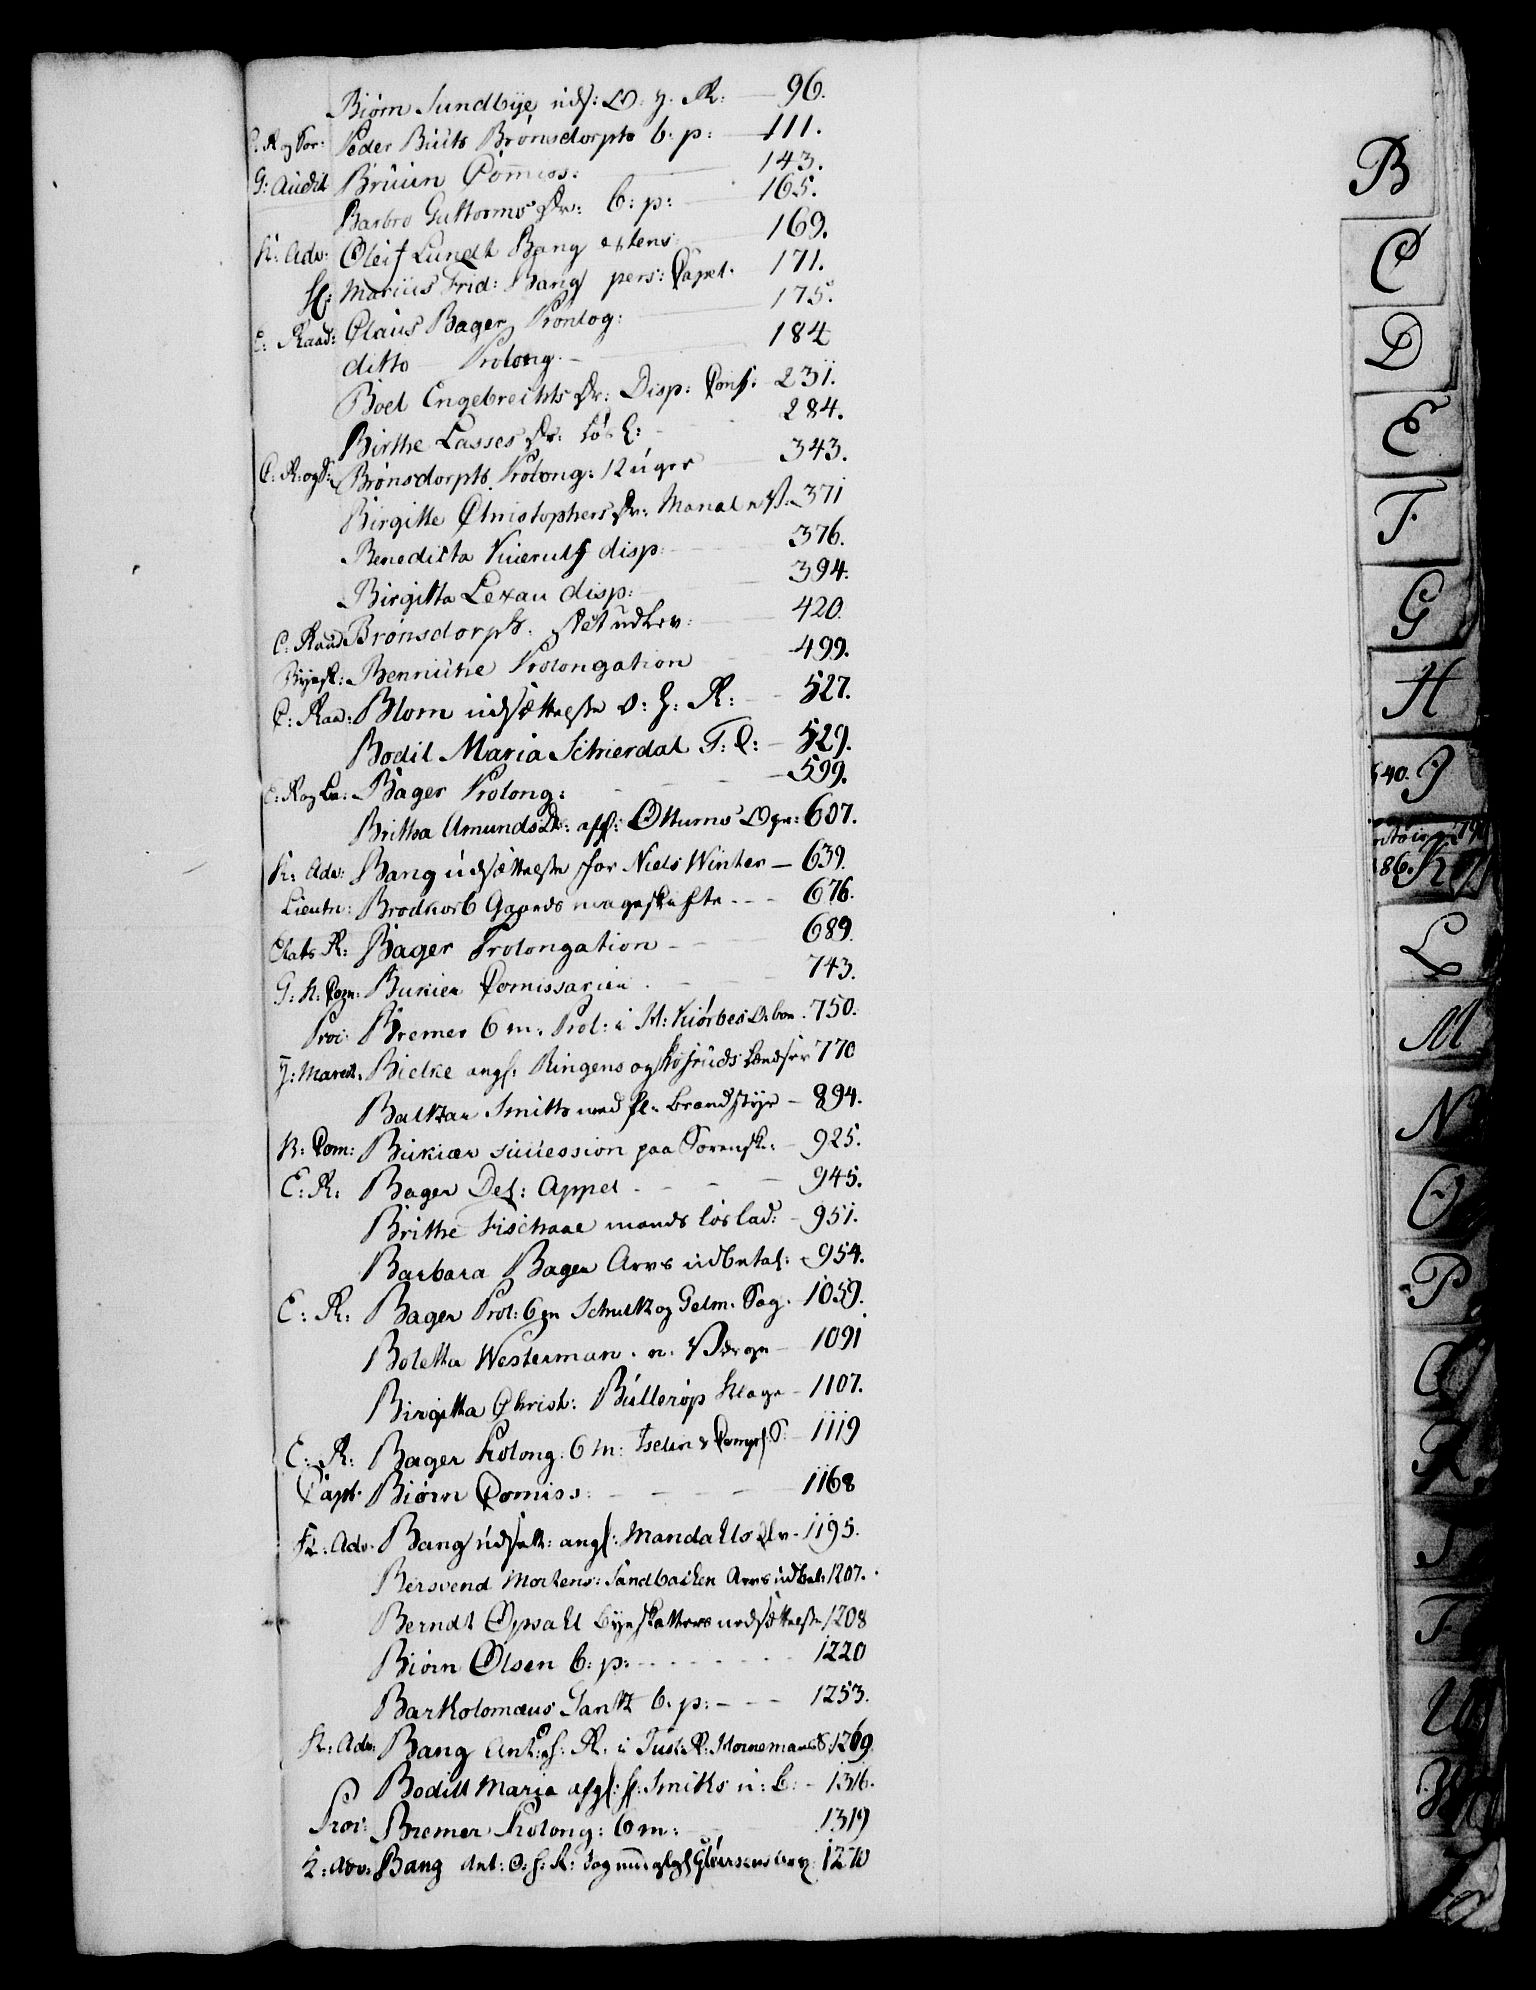 Biørn Sundbye uds: O. H. R: 96.
C. R og Tor: Peder Buits Brønsdorphs b: p: 111.
G: Audit Brüün Commiss: 143.
Barbro Guttorms Dr: b: p: 165.
K: Adv: Oleif Lundt Bang extens: 169.
H: Marius Frid: Bang pers: Capel. 171.
E: Raad: Claus Bager Prolog: 175.
ditto Prolong. 184
Boel Engebrechts Dr: Disp: Cons. 231.
Birthe Lasses Dr: løs L: 284.
C: R: og Brønsdorphs. Prolong: 12 uger 343.
Birgitte Christophers Dr: Manat n V. 371
Benedicta disp: 376.
Birgitta Lexau disp: 394.
C: Raad Brønsdorph. 420.
Byesk: Benniche Prolongation 499.
C: Raad: Blom udsættelse O: H: R: 527.
Bodil Maria Schierdal T: L: 529.
E: R og La: Bager Prolong: 599.
Britha Amunds Dr: aff: Ottums 607.
K: Adv: Bang udsættelse for Niels Winter 639.
Lieutn: Brodkorb Gaards mageskifte 676.
Etats R: Bager Prolongation 689.
G: K: Com: Bukier Comissarier 743.
Proc: Bremer 6 m. Prol: i 750.
H: March. Bielke angs: Ringens og 770
Baltzar Smith med fl: brandstyr 894.
K: Com: Bukier succession paa Sorensk: 925.
E: R: Bager Def: Appel 945.
Brithe Fischaae mands løslad: 951.
Barbara Bager Arvs udbetal: 954.
E: R: Bager Prol: 6 m Schultz og Gelm. Sag. 1059.
Boletta Westerman. n. Værge 1091
Birgitta Christ: Büllerup klage 1107.
E: R: Bager Prolong: 6 m: Iselin & Comps: S: 1119
Capt. Biørn Comiss: 1168
K: Adv. Bang udsætt: angl: Mandalls Elv 1195.
Bersvend Mortens: Sandbacken Arvs udbet: 1207.
Berndt Opsahl byeskatters nedsættelse 1208
Biørn Olsen b: p: 1220
Bartholomæus Gantz b: p: 1253.
K: Adv: Bang Ant: H: R. i Just: R: Hornemans S. 1269.
Bodill Maria afgl: H: Smiths u: b: 1316.
Proc: Bremer Prolong: 6 m: 1319
K: Adv: Bang Ant: O: H: R: 1270
B
C
D
E
F
G
H
I
K
L
M
N
O
P
Q
R
S
T
U
W